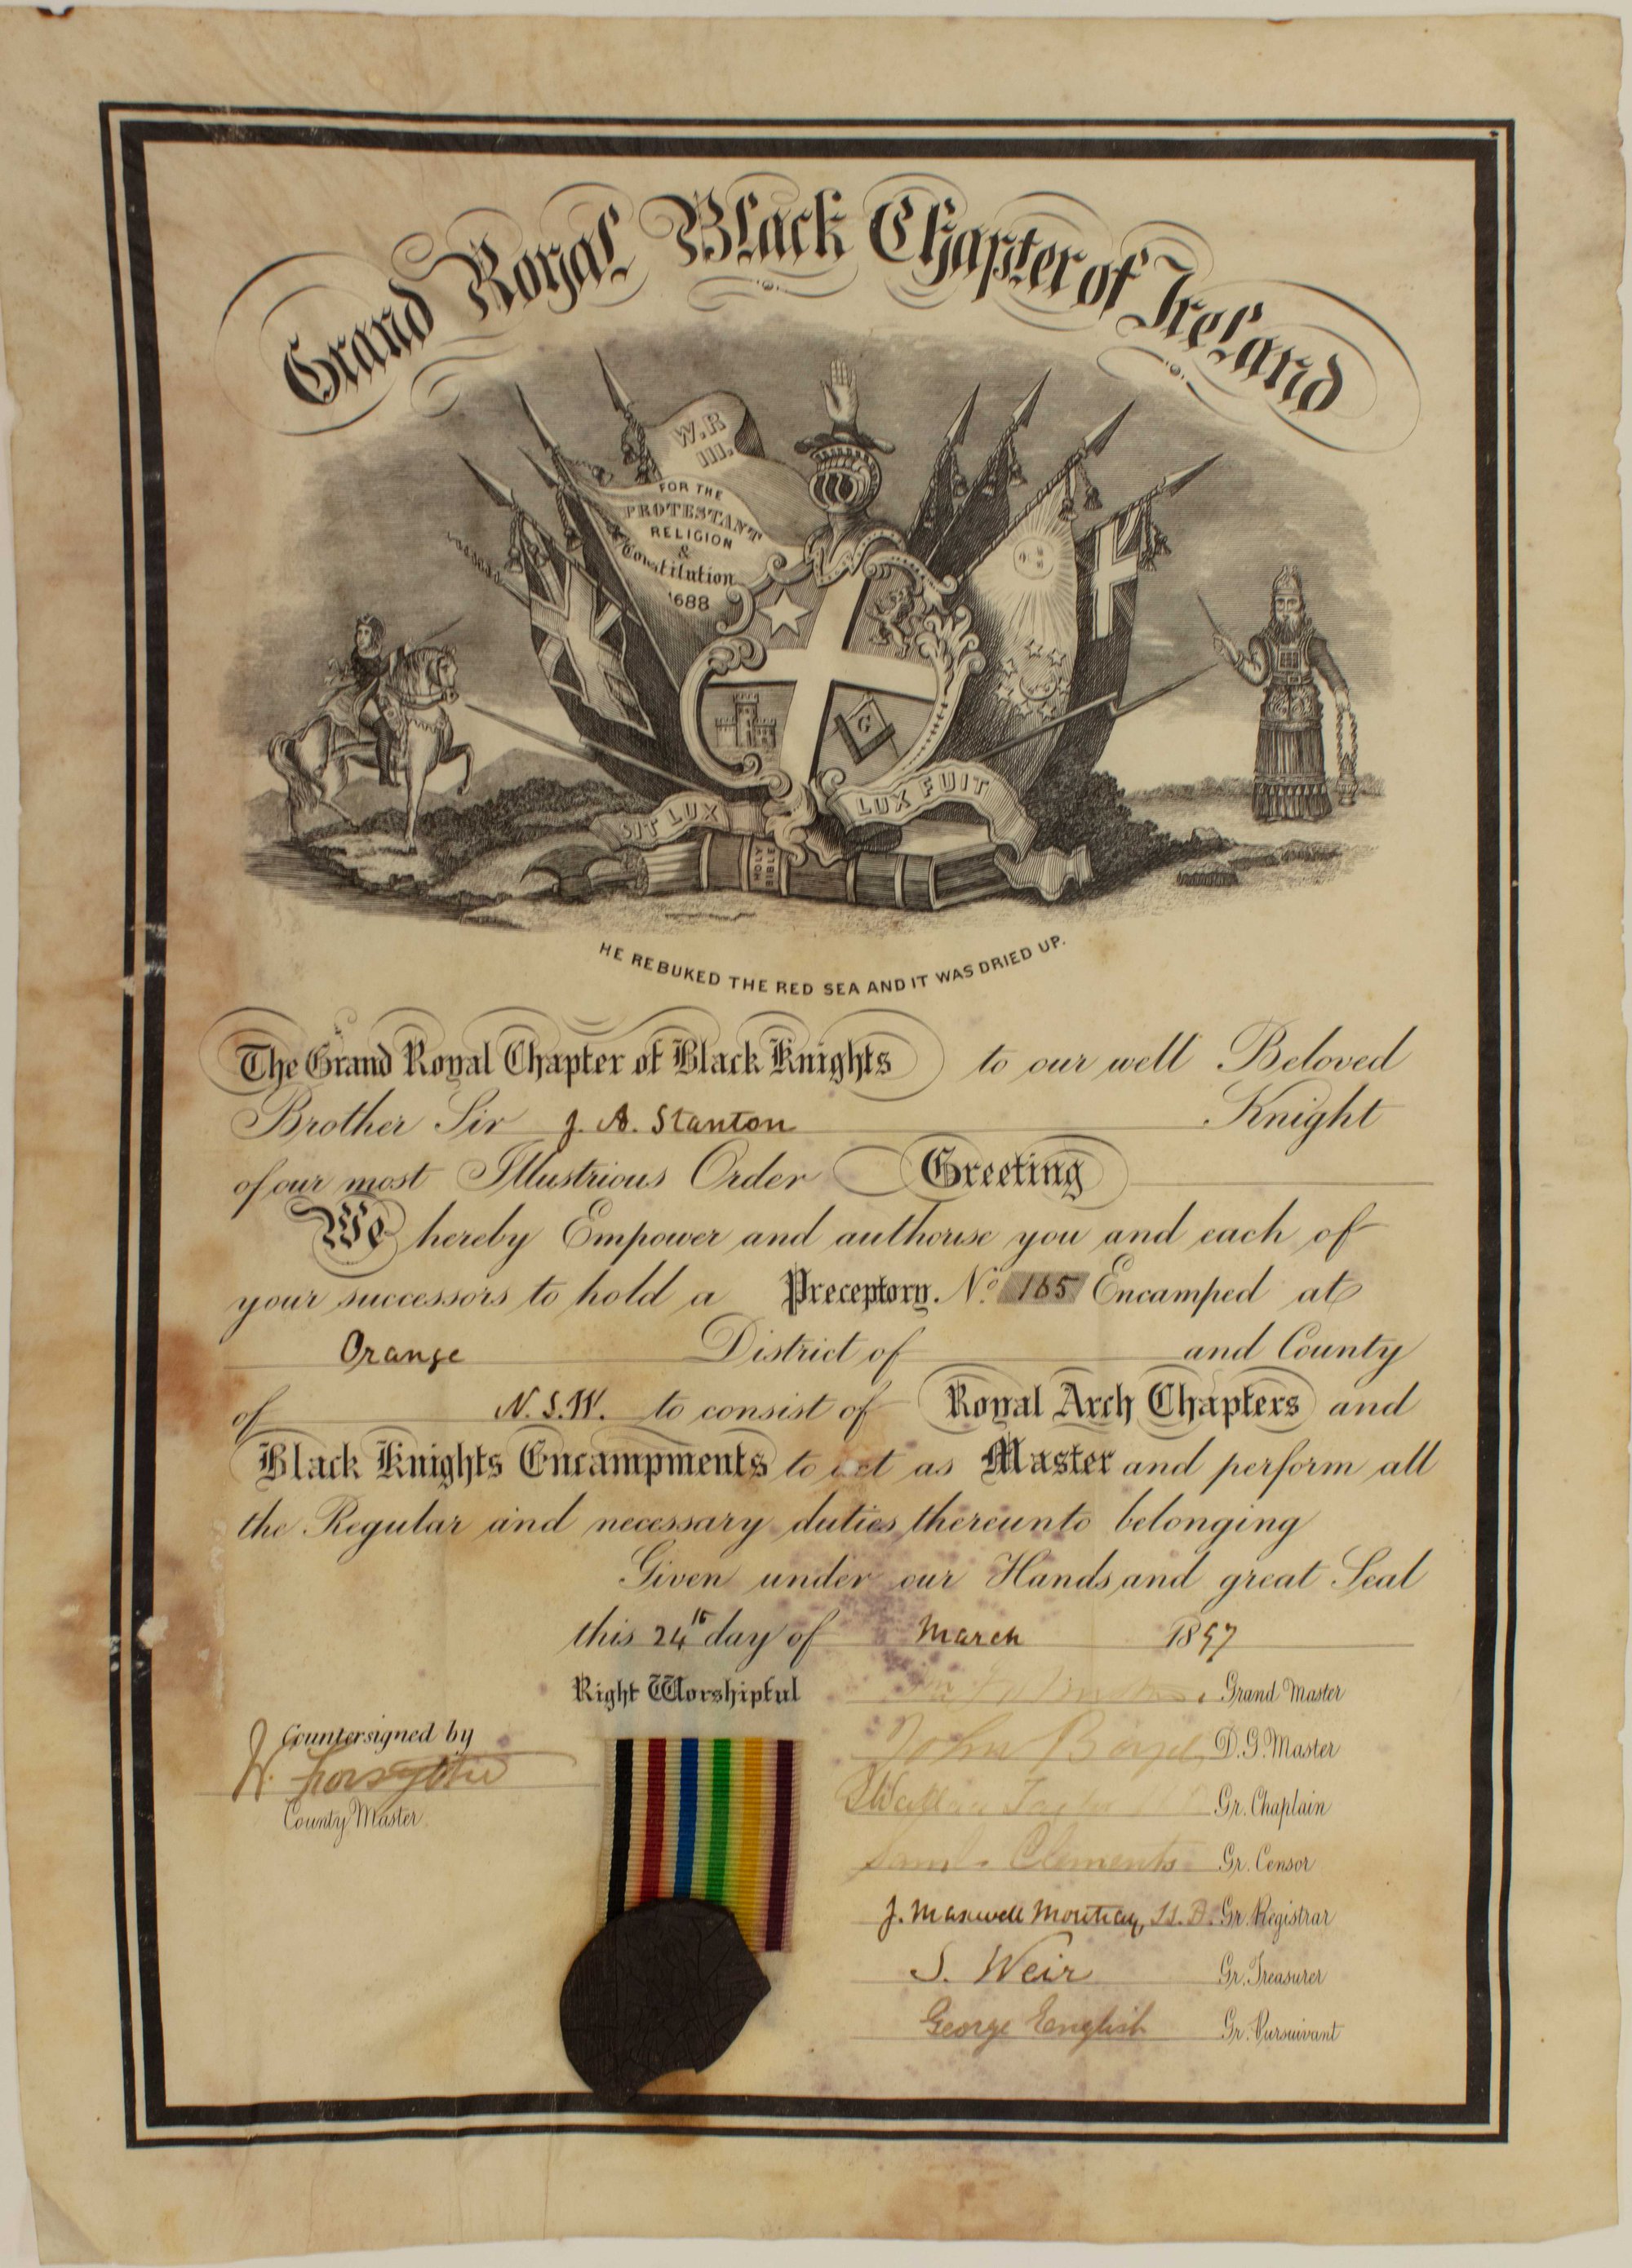 Grand Royal Black Chapter of Ireland
W.R
III.
FOR THE
PROTESTANT
RELIGION
&
Constitution
1688
G
SIT LUX
LUX FUIT
HOLY
BIBLE
HE REBUKED THE RED SEA AND IT WAS DRIED UP.
The Grand Royal Chapter of Black Knights to our well Beloved
Brother Sir J. A. Stanton Knight
of our most Illustrious Order Greeting
We hereby Empower and authorise you and each of
your successors to hold a Preceptory. No. 165 Encamped at
Orange District of and County
of N.S.W. to consist of Royal Arch Chapters and
Black Knights Encampments to act as Master and perform all
the Regular and necessary duties thereunto belonging
Given under our Hands and great Seal
this 24th day of March 1897
Right Worshipful Grand Master
Countersigned by
W. Forsythe
County Master.
John Boyd D.G. Master
Wallace Taylor Gr. Chaplain
Saml. Clements Gr. Censor
J. Maxwell Gr. Registrar
S. Weir Gr. Treasurer
George English Gr. Pursuivant